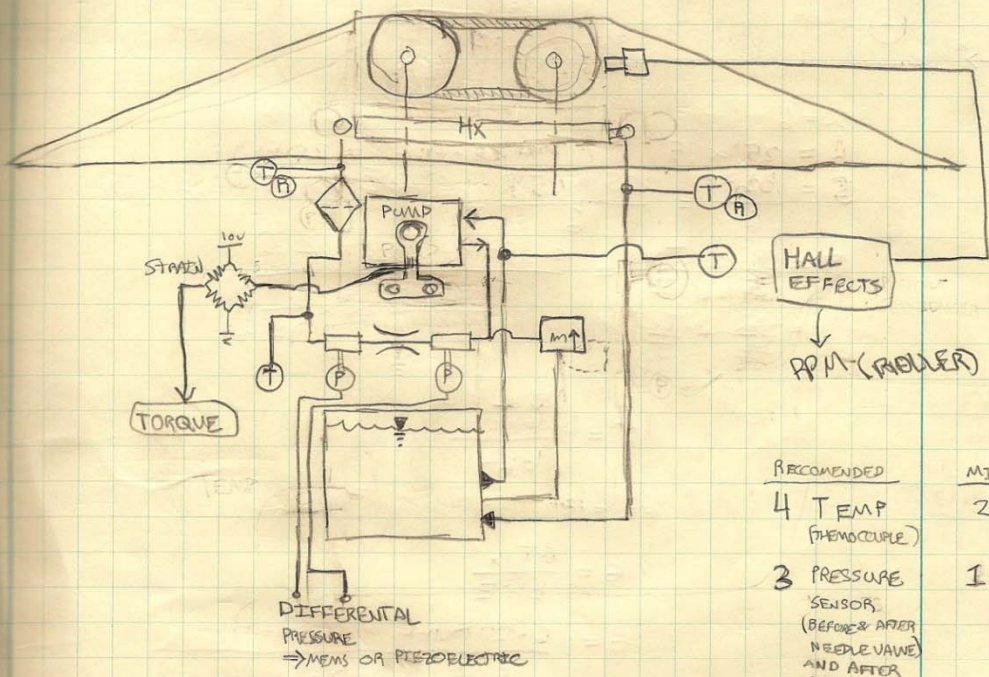 HX
T
P
T
P
PUMP
10V
STRAIN
T
HALL
EFFECTS
RPM (ROLLER)
m
T
P
P
TORQUE
DIFFERENTIAL
PRESSURE
⇒ MEMS OR PIEZOELECTRIC
RECCOMENDED
4 TEMP 2
(THEMOCOUPLE)
3 PRESSURE 1
SENSOR
(BEFORE & AFTER
NEEDLE VALVE)
AND AFTER